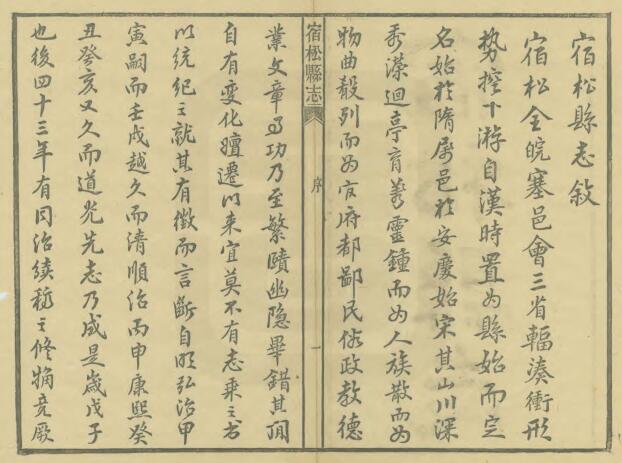 宿松縣志敘
宿松全皖塞邑會三省輻湊衝形
势控下游自漢時置为縣始而定
名始於隋屬邑於安慶始宋其山川深
秀濚迴亭育羲靈鍾而为人族散而为
物曲殽列而为官府都鄙民俗政教德
宿松縣志
序
一
業文章事功乃至繁賾幽隐畢錯其间
自有变化嬗遷以来宜莫不有志乘之书
以统纪之就其有徵而言斷自明弘治甲
寅嗣而壬戌越久而清順治丙申康熙癸
丑癸亥又久而道光先志乃成是歲戊子
也後四十三年有同治续稿之修猶竟厥